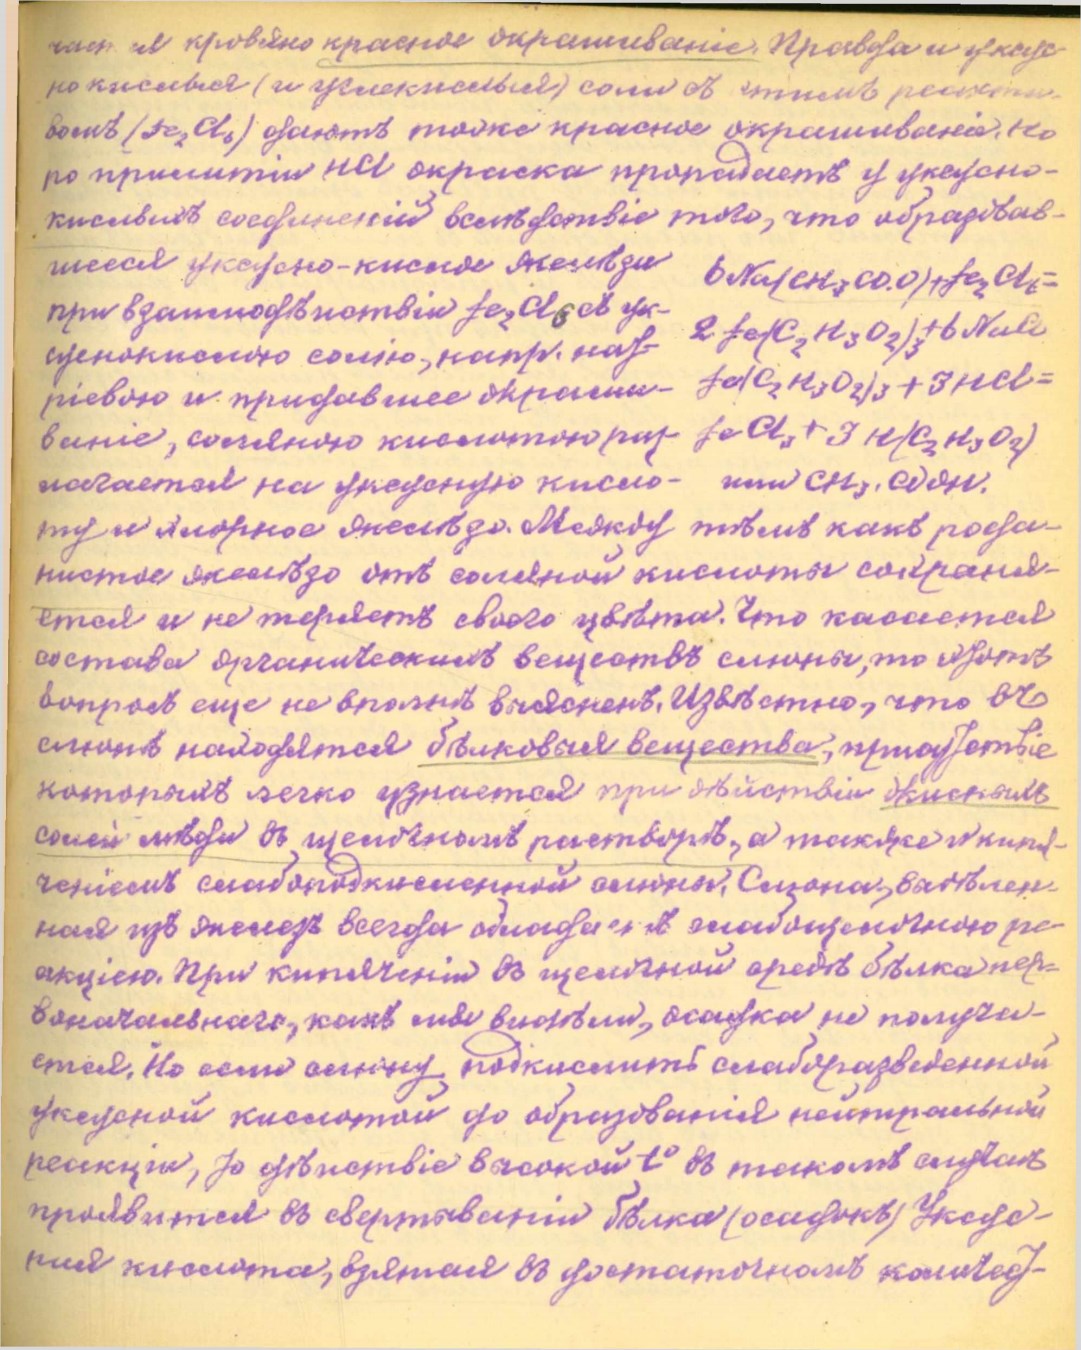 кровяно красное окрашиваніе. Правда и уксус-
нокислыя (и углекислыя) соли съ этимъ реакти-
вомъ (Fe₂Cl₆) даютъ тоже красное окрашиваніе, но
по прилитіи HCl окраска пропадаетъ у уксусно-
кислыхъ соединеній вслѣдствіе того, что образовав-
шееся уксусно-кислое желѣзо
при взаимодѣйствіи Fe₂Cl₆ съ ук-
суснокислою солію, напр. нат-
ріевою и придавшее окраши-
ваніе, соляною кислотою раз-
лагается на уксусную кисло-
6Na(CH₃CO.O)+Fe₂Cl₆=
2Fe(C₂H₃O₂)₃+6NaCl
Fe(C₂H₃O₂)₃+3HCl=
FeCl₃+3H(C₂H₃O₂)
или CH₃.COOH.
ту и хлорное желѣзо. Между тѣмъ какъ рода-
нистое желѣзо отъ соляной кислоты сохраня-
ется и не теряетъ своего цвѣта. Что касается
состава органическихъ веществъ слюны, то этотъ
вопросъ еще не вполнѣ выясненъ. Извѣстно, что въ
слюнѣ находятся бѣлковыя вещества, присутствіе
которыхъ легко узнается при дѣйствіи окисныхъ
солей мѣди въ щелочномъ растворѣ, а также и кипя-
ченіемъ слабоподкисленной слюны. Слюна, выдѣлен-
ная изъ железъ всегда обладаетъ слабощелочною ре-
акціею. При кипяченіи въ щелочной средѣ бѣлка пер-
воначальнаго, какъ мы видѣли, осадка не получа-
ется. Но если слюну подкислить слаборазведенной
уксусной кислотой до образованія нейтральной
реакціи, то дѣйствіе высокой t° въ такомъ случаѣ
проявится въ свертываніи бѣлка (осадокъ) Уксус-
ная кислота, взятая въ достаточномъ количест-